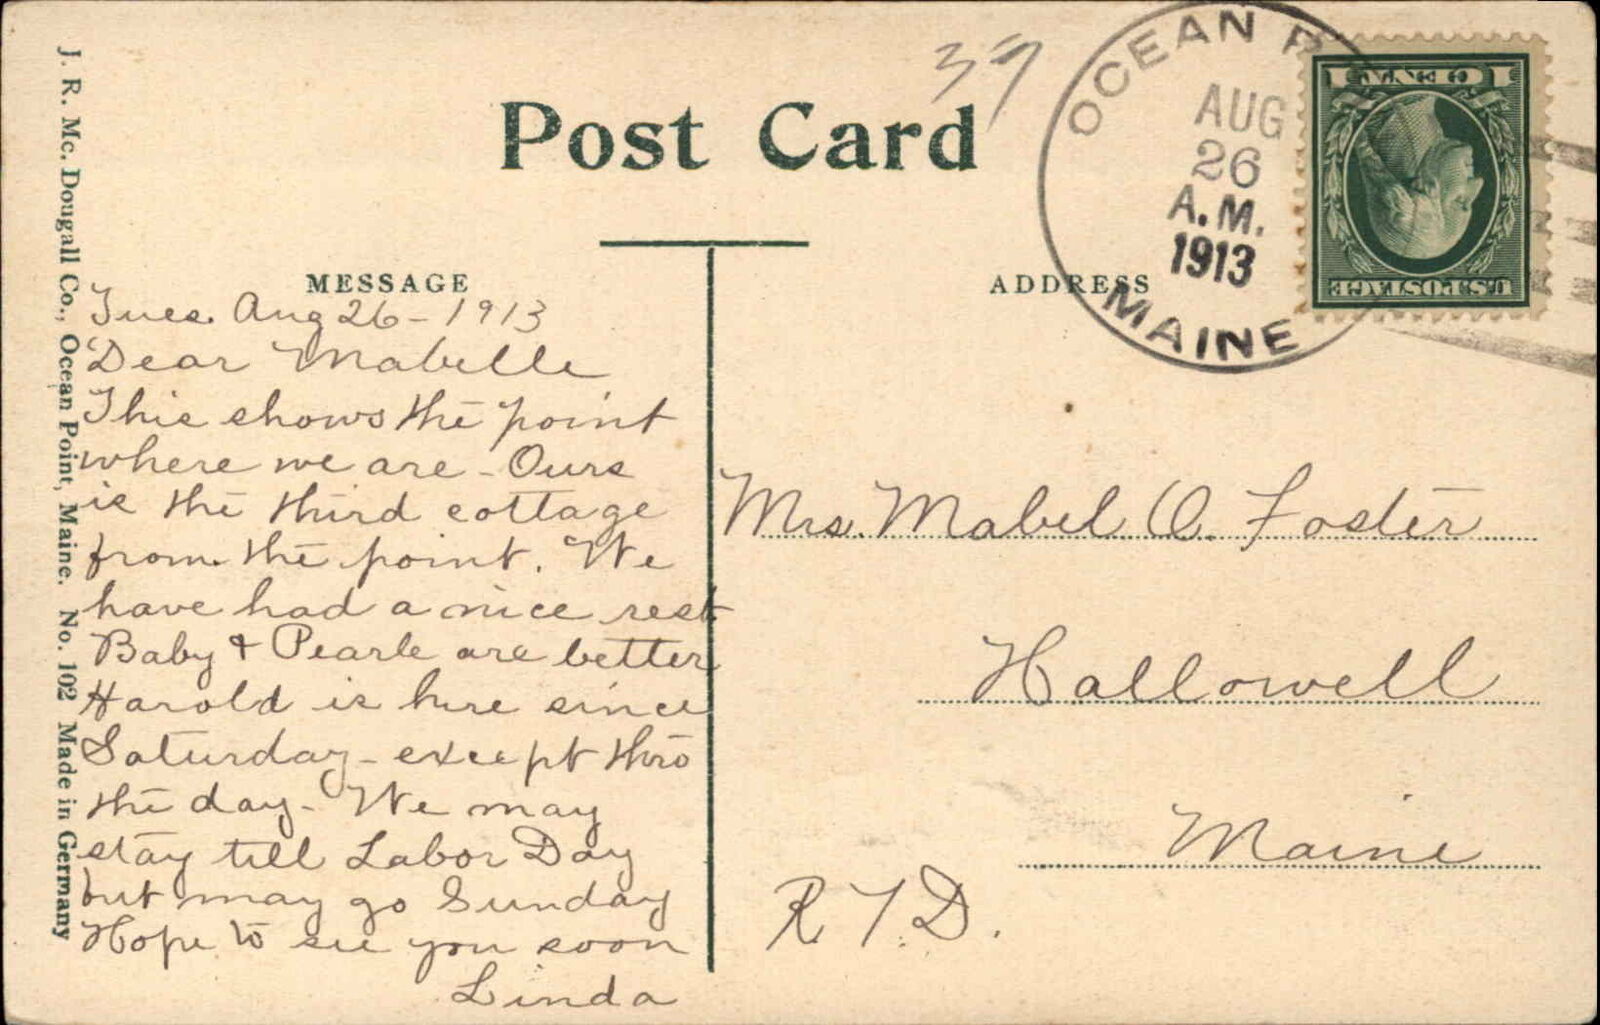 Post Card
39
OCEAN P
AUG
26
A.M.
1913
MAINE
1 ONE CENT 1
U.S. POSTAGE
MESSAGE
ADDRESS
Tues. Aug 26 - 1913
Dear Mabelle,
This shows the point
where we are - Ours
is the third cottage
from the point. We
have had a nice rest
Baby & Pearle are better
Harold is here since
Saturday - except thro
the day - We may
stay till Labor Day
but may go Sunday
Hope to see you soon
Linda
Mrs. Mabel O. Foster
Hallowell
Maine
R.F.D.
J. R. Mc. Dougall Co., Ocean Point, Maine. No. 102 Made in Germany